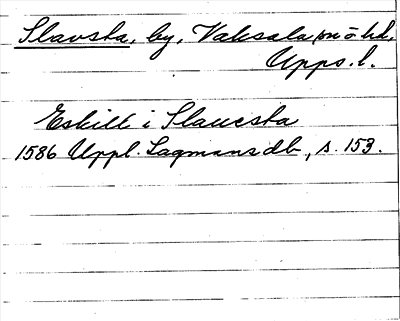 Slavsta, by, Vaksala sn o hd,
Upps. l.
Eskill i Slauesta
1586 Uppl. Lagmansdb, s. 153.